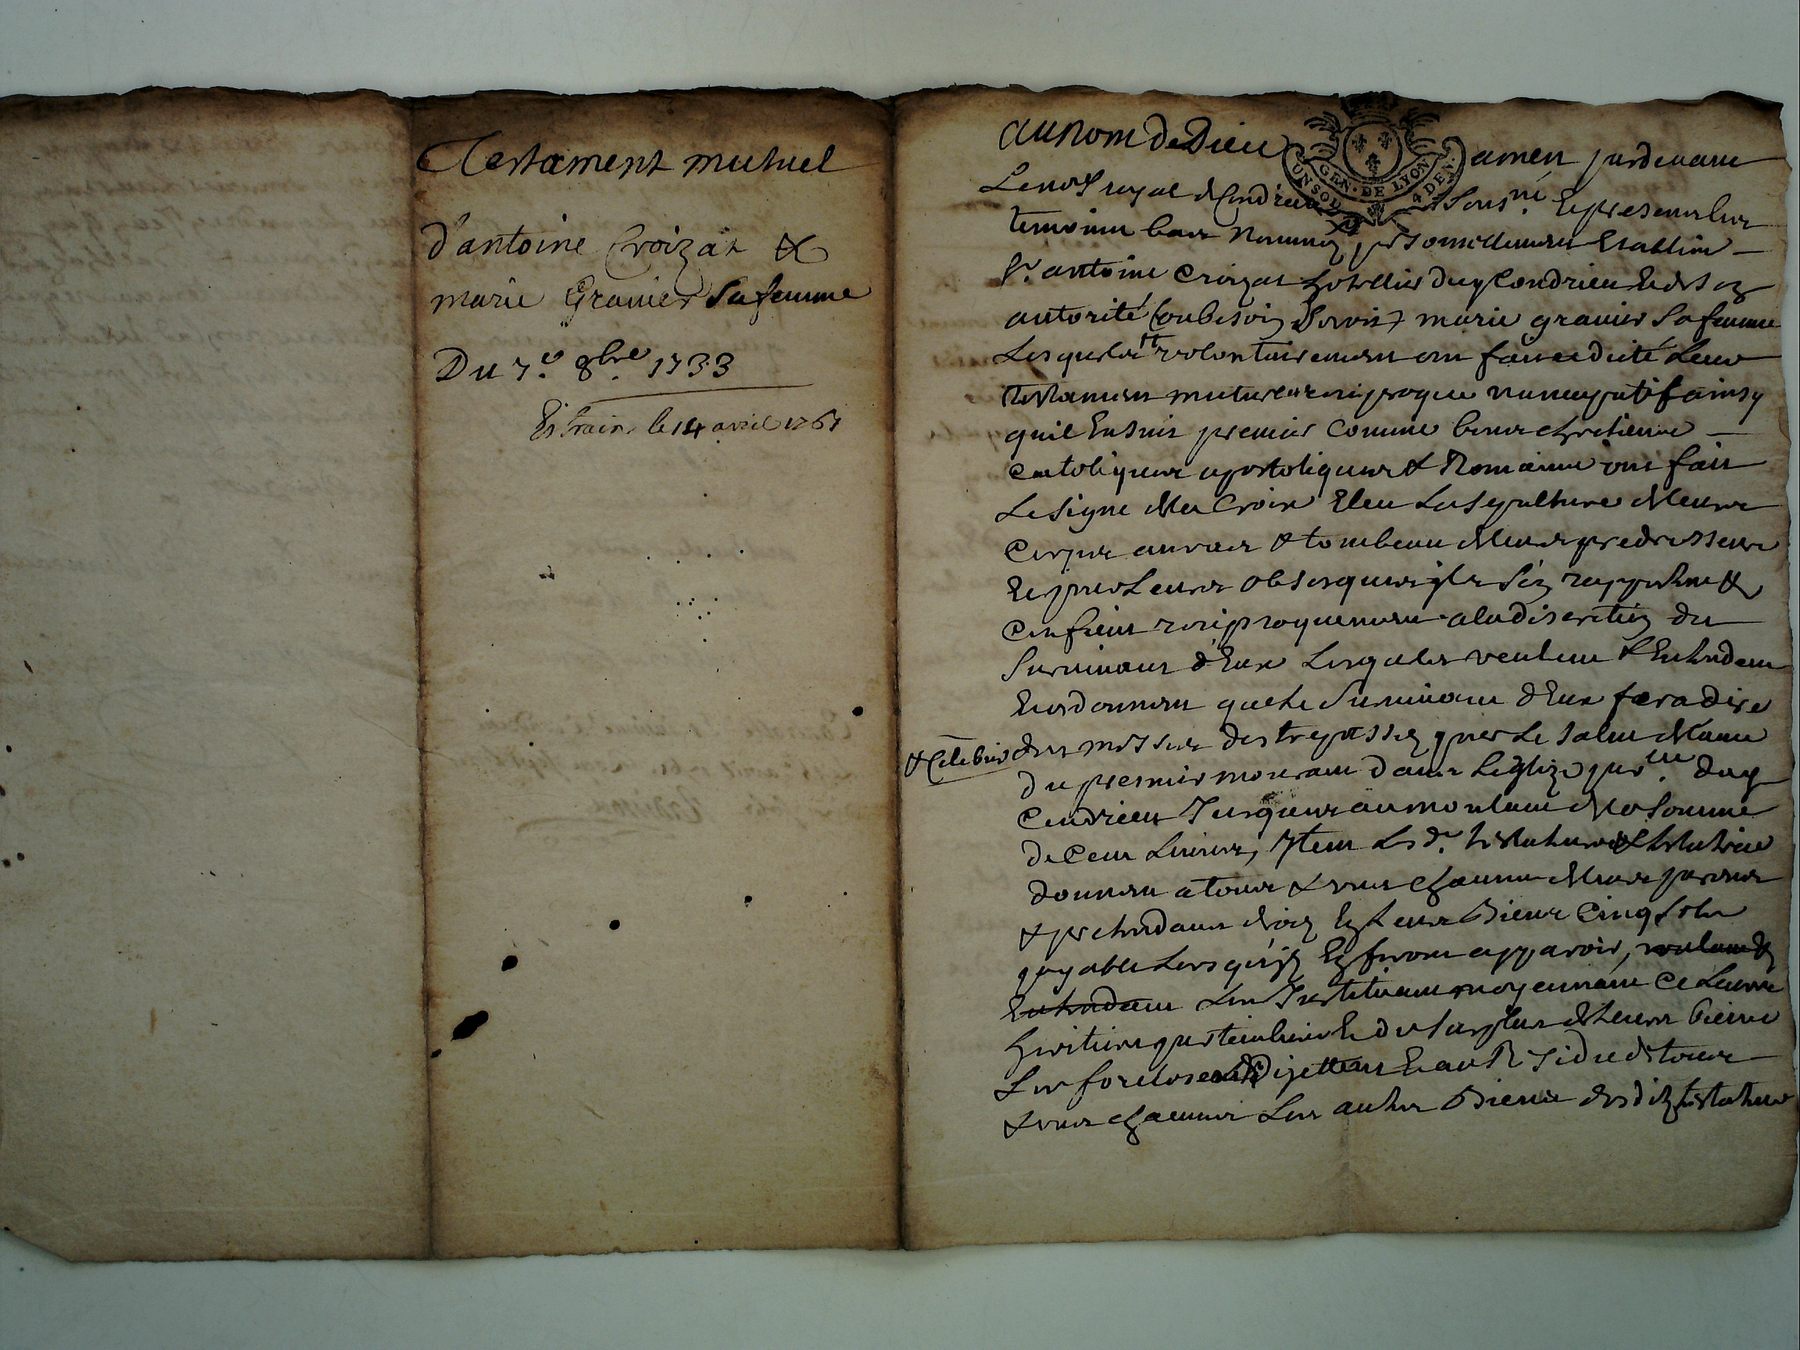 Testament mutuel
d'antoine Croizat &
marie Granier sa femme
Du 7e. 8bre. 1733
Extrait le 14 avril 1761
au nom de Dieu amen pardevant
GEN. DE LYON
Le no.re royal de Condrieu sousné. Et presens les
temoins bas nommez personnellement Establis
Sr. antoine Croizat hotellier du Condrieu & de son
autorité (ou besoin seroit) marie granier sa femme
Lesquels volontairement ont fait et dicté Leur
testament mutuel et reciproque nuncupatif ainsy
quil Ensuit premier Comme bons chretiens
Catoliques apostoliques & Romains ont fait
Le signe de la Croix Eleu La sepulture de leurs
Corps au vas & tombeau de leurs predecesseurs
Et pour Leurs obseques ils s'en rapportent &
Confient reciproquement a la discretion du
survivant d'Eux Lesquels veulent & Entendent
Et ordonnent que le survivant d'Eux fera dire
& Celebrer des messes des trepassez pour Le salut de l'ame
du premier mourant dans L'eglize par.lle du
Condrieu Jusques au montant de la somme
de Cent Livres, Item Les d. testateurs & testatrice
donnent a tous & uns chacuns Leurs parens
& pretendans droit En Leurs Biens Cinq sols
payable Lors qu'ils En feront apparoir, veulent &
Entendent Les Instituant moyennant Ce Leurs
heritiers particuliers & du surplus de leurs biens
Les forclosent & dejettent Et au Residu de tous
& uns chacuns Les autres Biens desdits testateurs